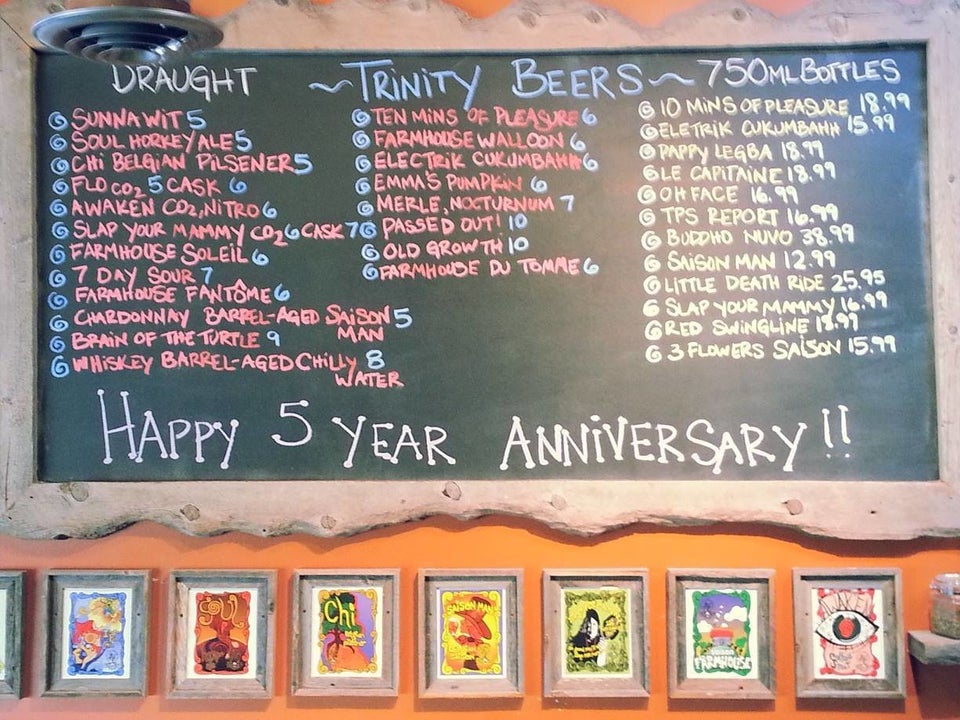 DRAUGHT
SUNNA WIT 5
SOUL HORKEY ALE 5
CHI BELGIAN PILSENER 5
FLO CO2 5 CASK 6
AWAKEN CO2, NITRO 6
SLAP YOUR MAMMY CO2 6 CASK 7
FARMHOUSE SOLEIL 6
7 DAY SOUR 7
FARMHOUSE FANTÔME 6
CHARDONNAY BARREL-AGED SAISON 5
MAN
BRAIN OF THE TURTLE 9
WHISKEY BARREL-AGED CHILLY 8
WATER
~TRINITY BEERS~
TEN MINS OF PLEASURE 6
FARMHOUSE WALLOON 6
ELECTRIK CUKUMBAHH 6
EMMA'S PUMPKIN 6
MERLE, NOCTURNUM 7
PASSED OUT! 10
OLD GROWTH 10
FARMHOUSE DU TOMME 6
750ML BOTTLES
10 MINS OF PLEASURE 18.99
ELETRIK CUKUMBAHH 15.99
PAPPY LEGBA 18.99
LE CAPITAINE 18.99
OH FACE 16.99
TPS REPORT 16.99
BUDDHO NUVO 38.99
SAISON MAN 12.99
LITTLE DEATH RIDE 25.95
SLAP YOUR MAMMY 16.99
RED SWINGLINE 18.99
3 FLOWERS SAISON 15.99
HAPPY 5 YEAR ANNIVERSARY!!
SOUL
Chi
SAISON MAN
SAISON
FARMHOUSE
AWAKEN